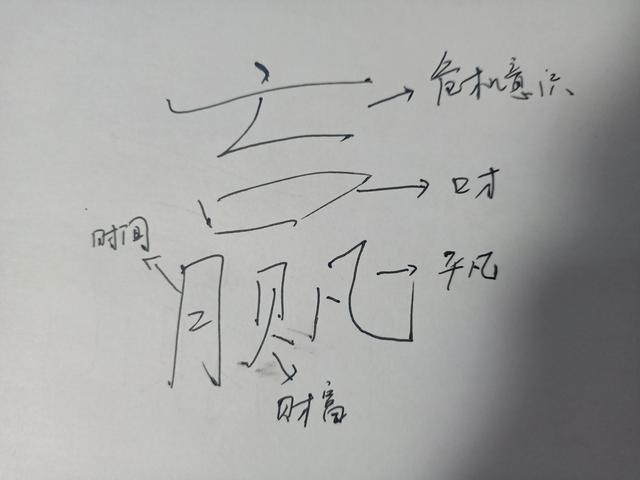 亡 危机意识
口 口才
时间
月 贝 凡 平凡
财富